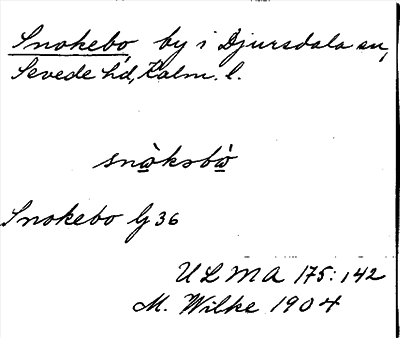 Snokebo, by i Djursdala sn,
Sevede hd, Kalm. l.
snὼksbὼ
Snokebo G 36
ULMA 175:142
M. Wilke 1904